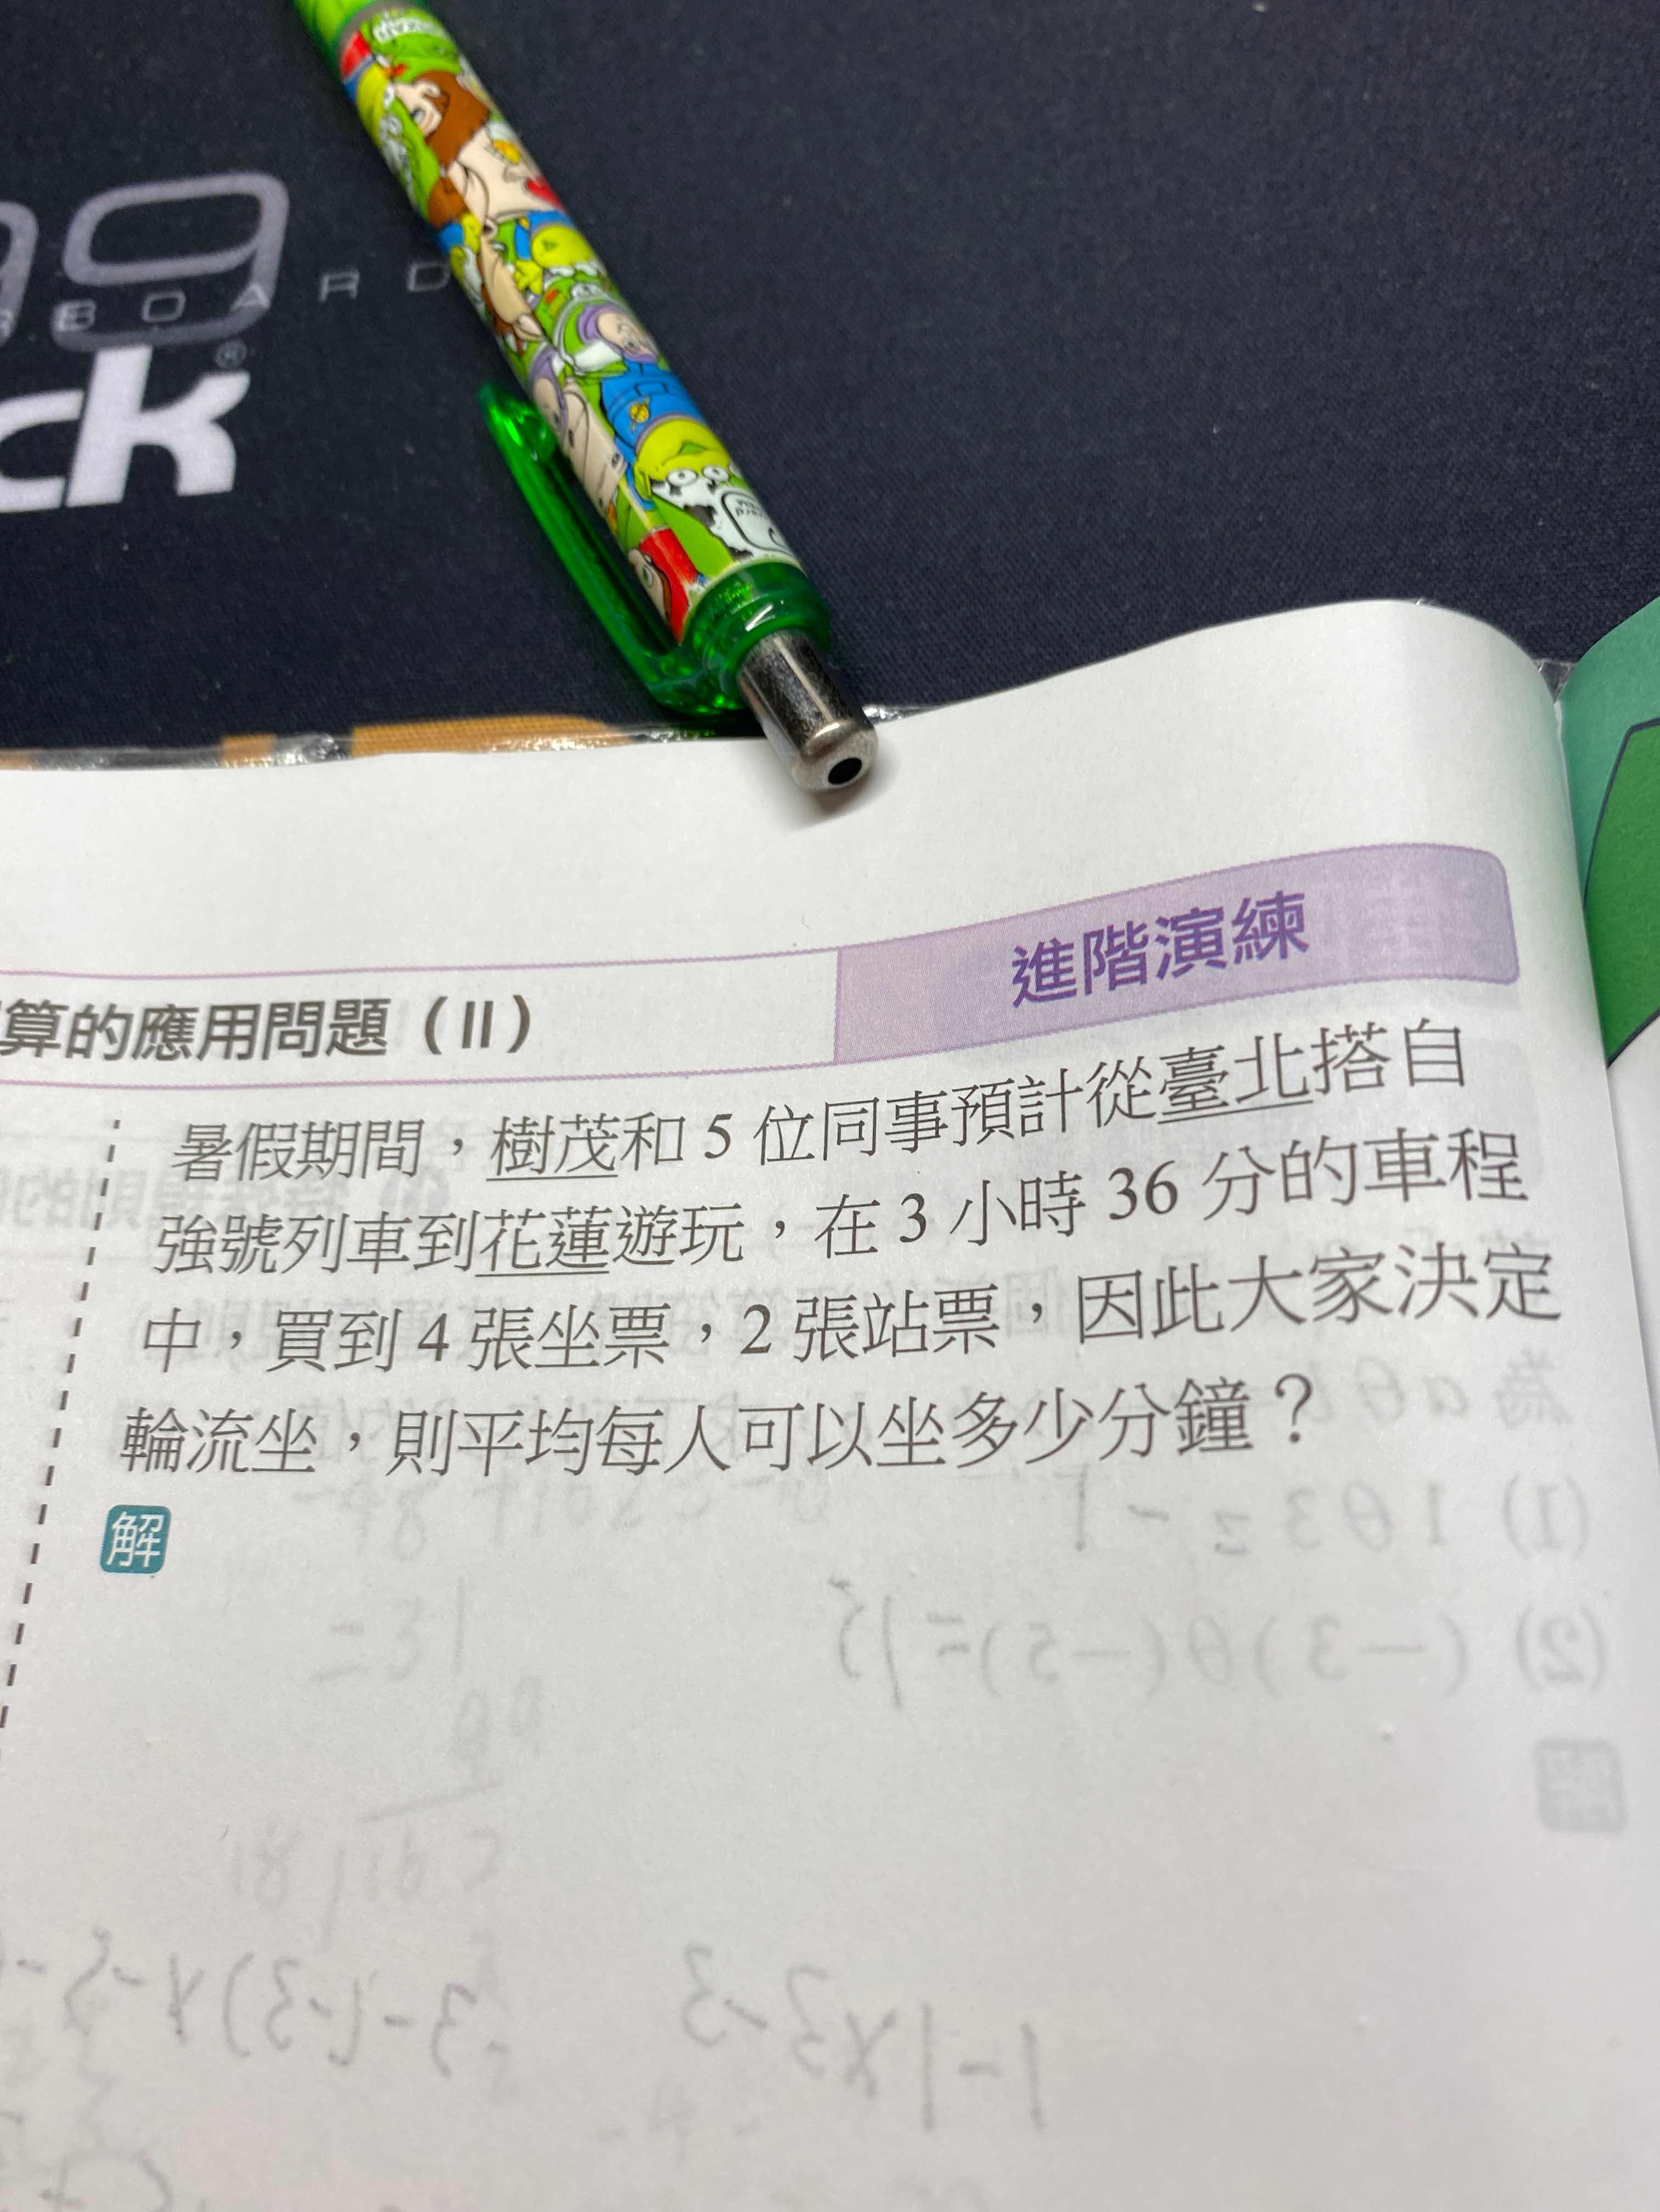 BOARD
ck®
進階演練
算的應用問題（II）
暑假期間，樹茂和 5 位同事預計從臺北搭自
強號列車到花蓮遊玩，在 3 小時 36 分的車程
中，買到 4 張坐票，2 張站票，因此大家決定
輪流坐，則平均每人可以坐多少分鐘？
解